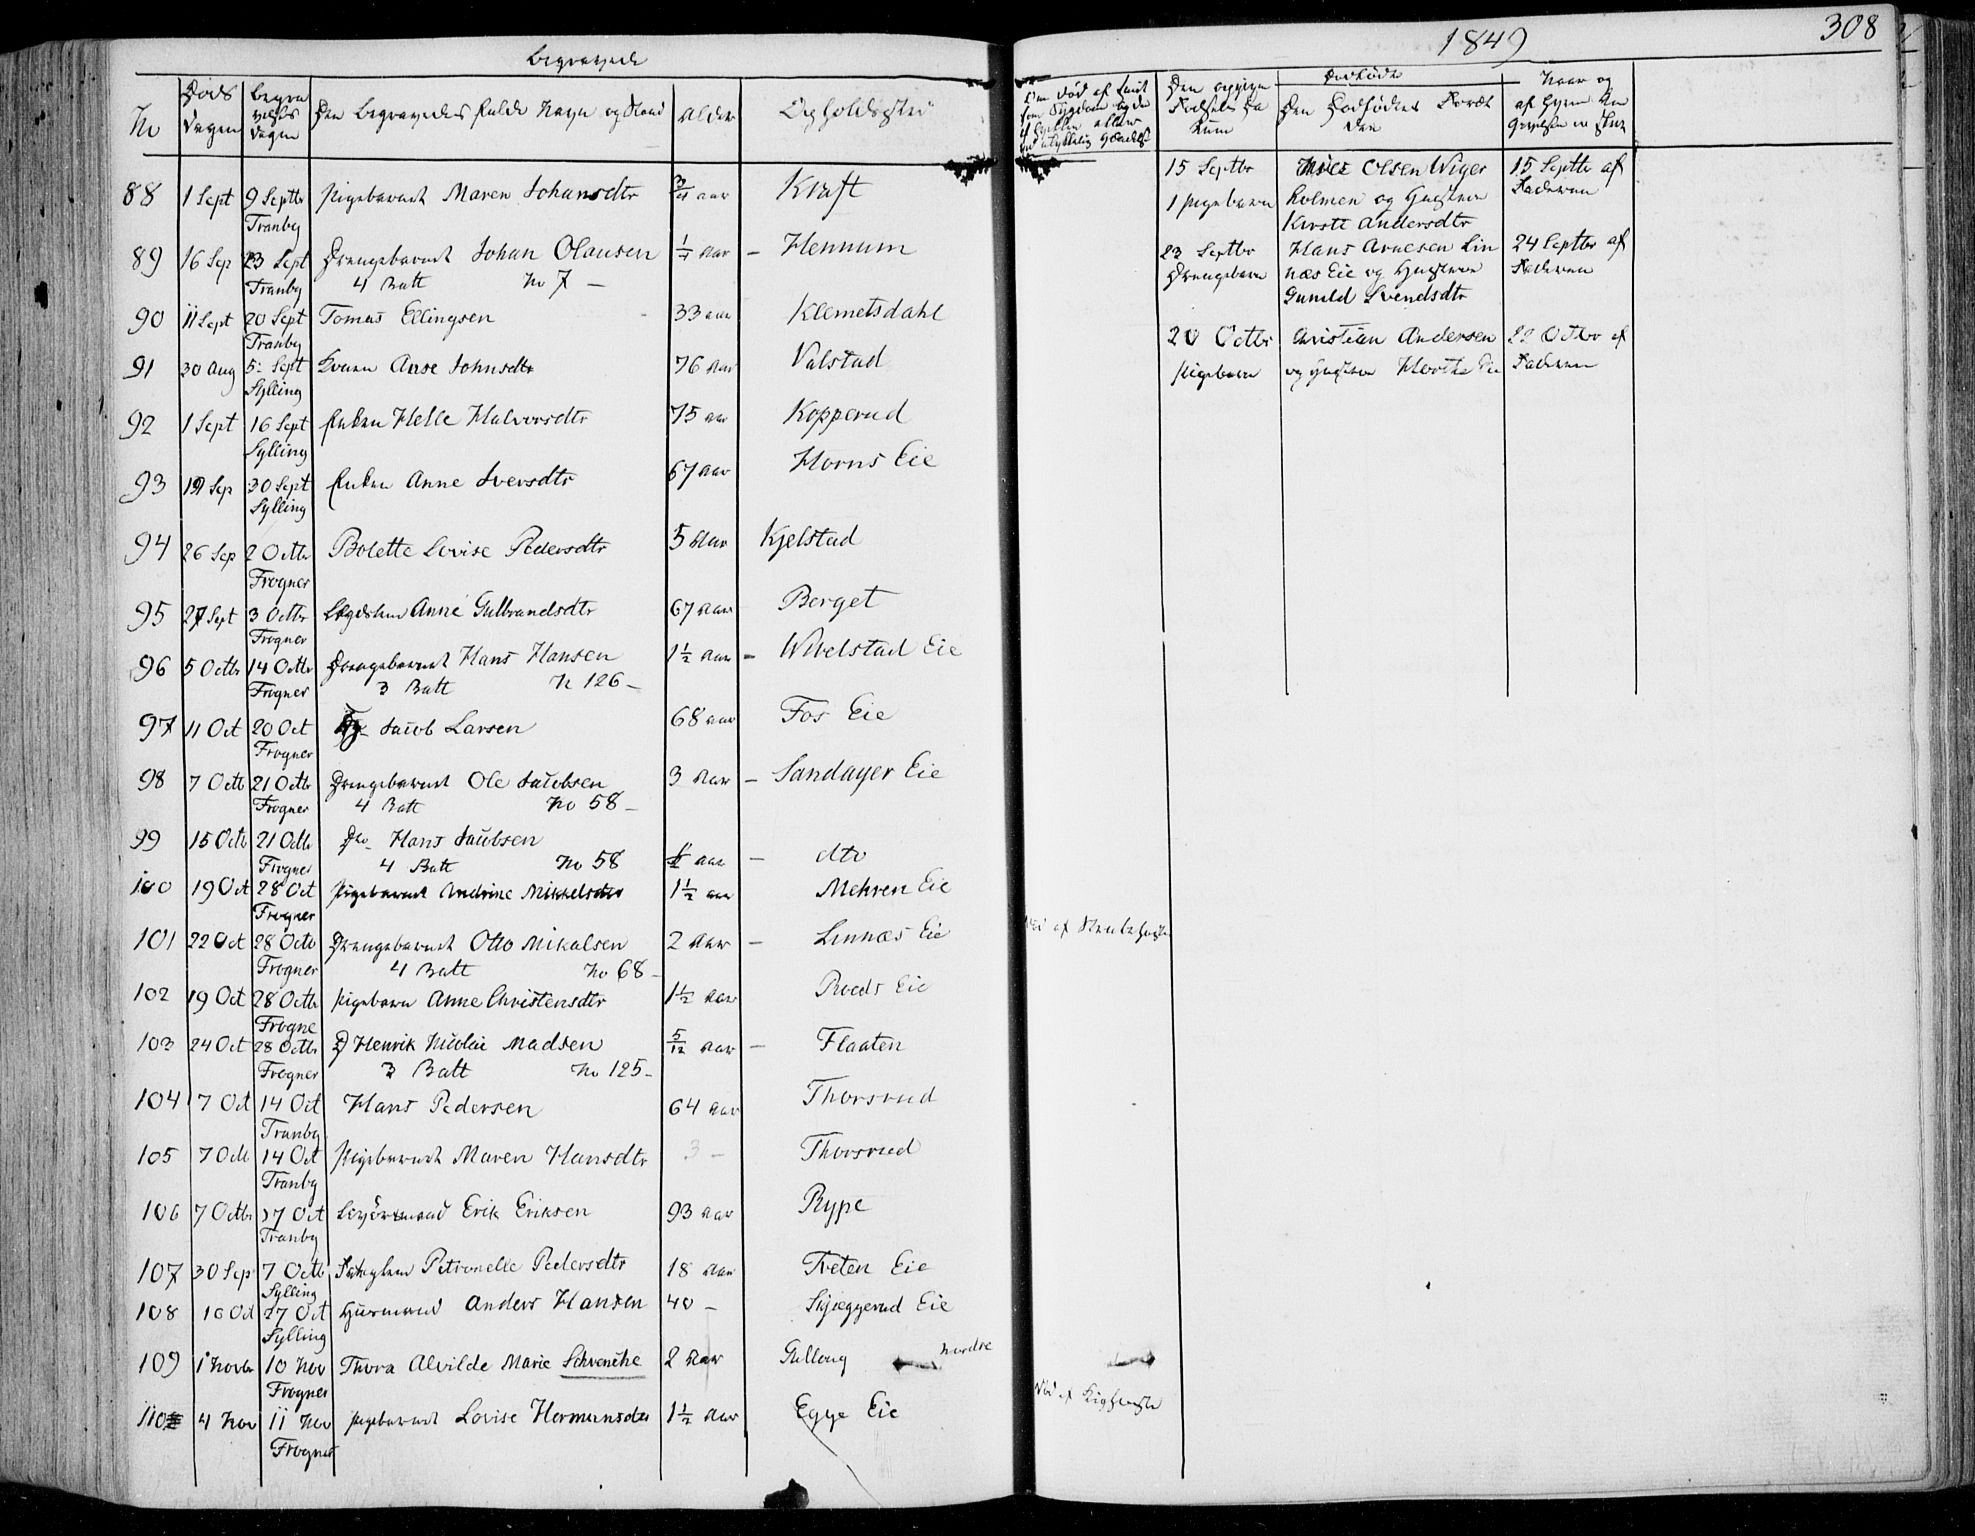 Begravede
1849
308
No
Døds Dagen
Begra velses Dagen
Den Begravedes fulde Navn og Stand
Alder
Opholdssted
Dødfødte
88 1 Sept 9 Septbr Pigebarnet Maren Johansdtr 3/4 aar Kraft
Tranby
89 16 Sep 23 Sept Drengebarnet Johan Olausen aar – Hennum
Tranby 4 Batt No 7 –
90 11 Sept 20 Sept Tomas Ellingsen 33 aar Klemetsdahl
Tranby
91 30 Aug 5: Sept Konen Anne Johnsdtr 76 Aar Valstad
Sylling
92 1 Sept 16 Sept Enken Helle Halvorsdtr 75 aar Kopperud
Sylling
93 19 Sep 30 Sept Enken Anne Iversdtr 67 Aar Horns Eie
Sylling
94 26 Sep 2 Octbr Bolette Lovise Pedersdtr 5 Aar Kjelstad
Frogner
95 27 Sept 3 Octbr Lægdslem Anne Gulbrandsdtr 67 Aar Berget
Frogner
96 5 Octbr 14 Octbr Drengebarnet Hans Hansen 1 1/2 Aar – Wivelstad Eie
Frogner 3 Batt N 126 –
97 11 Oct 20 Oct Jacob Larsen 68 aar Fos Eie
Frogner
98 7 Octb 21 Octbr Drengebarnet Ole Jacobsen 3 Aar – Sandager Eie
Frogner 4 Batt No 58 –
99 15 Octb 21 Octbr Do Hans Jacobsen aar – dto
Frogner 4 Batt No 58
100 19 Oct 28 Oct Pigebarnet Andrine Mikkelsdtr 1 1/2 aar Mehren Eie
Frogner
101 22 Oct 28 Octb Drengebarnet Otto Mikalsen 2 Aar – Linnæs Eie
Frogner 4 Batt No 68 –
102 19 Oct 28 Octbr Pigebarn Anne Christensdtr 1 1/2 Aar Roeds Eie
Frogne
103 24 Oct 28 Octbr D Henrik Nicolai Madsen 5/12 Aar – Flaaten
Frogner 3 Batt No 125 –
104 7 Oct 14 Oct Hans Pedersen 64 Aar Thorsrud
Tranby
105 7 Octb 14 Oct Pigebarnet Maren Hansdtr 3 – Thorsrud
Tranby
106 7 Octbr 17 Oct Erik Eriksen 93 aar Rype
Tranby
107 30 Sep 7 Octb Petronelle Pedersdtr 18 Aar Treten Eie
Sylling
108 16 Oct 27 Oct Husmand Anders Hansen 40 – Skjæggerud Eie
Sylling
109 1 Novbr 10 Nov Thora Alvilde Marie Schvencke 2 Aar Gulloug nordre
Frogner
110 4 Nov 11 Nov Pigebarnet Lovise Hermansdtr 1 1/2 Aar Egge Eie
Frogner
15 Septbr Olsen Wiger 15 Septbr af
1 Pigebarn holmen og Hustrue Faderen
Kirsti Andersdtr
23 Septbr Hans Arnesen Lin 24 Septbr af
Drengebarn næs Eie og Hustrue Faderen
Gunild Svendsdtr
20 Octbr Christian Andersen 22 Octbr af
Pigebarn og Hustrue Eie Faderen